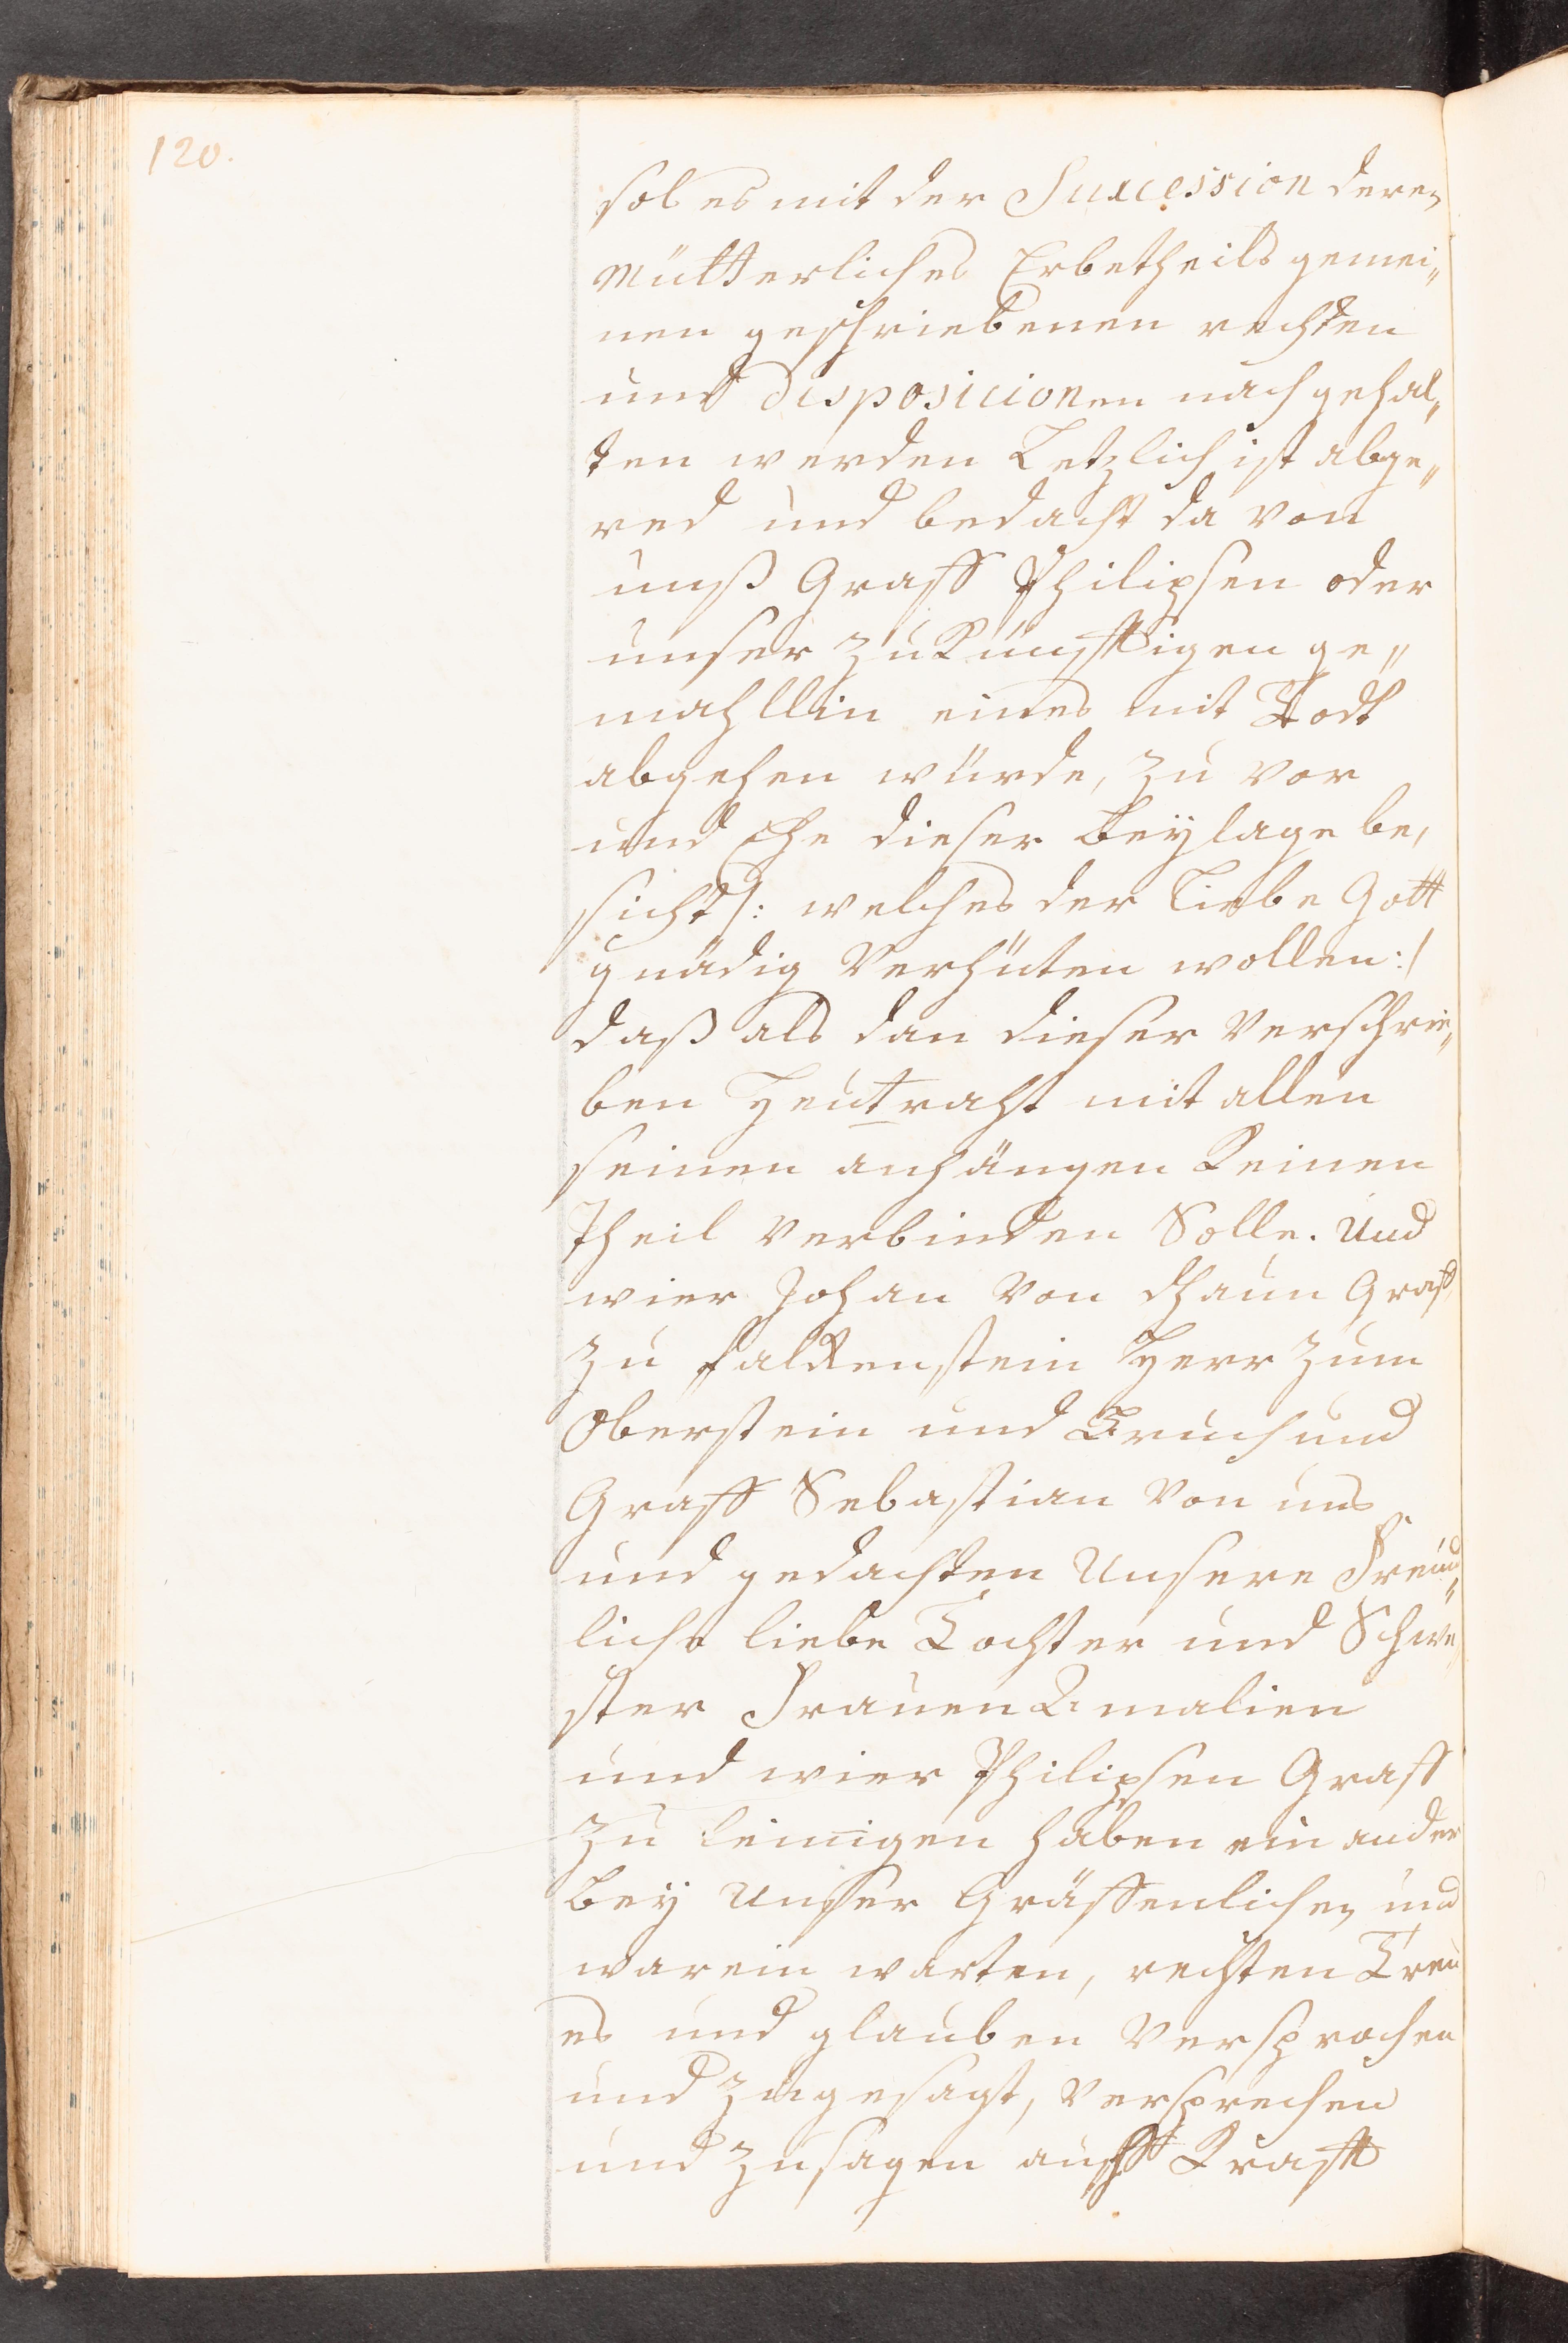 120.
sol es mit der Suxcession deren
Mütterliches Erbetheils gemei„
nen geschriebenen rechten
und disposicionen nach gehal„
ten werden Letzlich ist abge„
red und bedacht da von
unß Graff Philipsen oder
unser zukünfftigen ge„
mahllin eines mit Todt
abgehen würde, zu vor
und Ehe dieser Beÿlage be,
sicht /: welches der Liebe Gott
gnädig Verhüten wollen :/
daß als dan dieser Verschrie„
ben Heutraht mit allen
seinen anhängen Keinen
Theil verbinden Solle. Und
wier Johan Von dhaun Graff
zu falkenstein Herr zum
Oberstein und Bruch und
Graff Sebastian Von uns
und gedachten Unsere Freund„
liche liebe Tochter und Schwe„
ster Frauen Amalien
und wier Philipsen Graff
zu leinigen haben ein ander
Beÿ Unser Gräffenlichen und
warein warten, rechten Treu
es und glauben Versprochen
und zugesagt, Versprechen
und zusagen auch Krafft